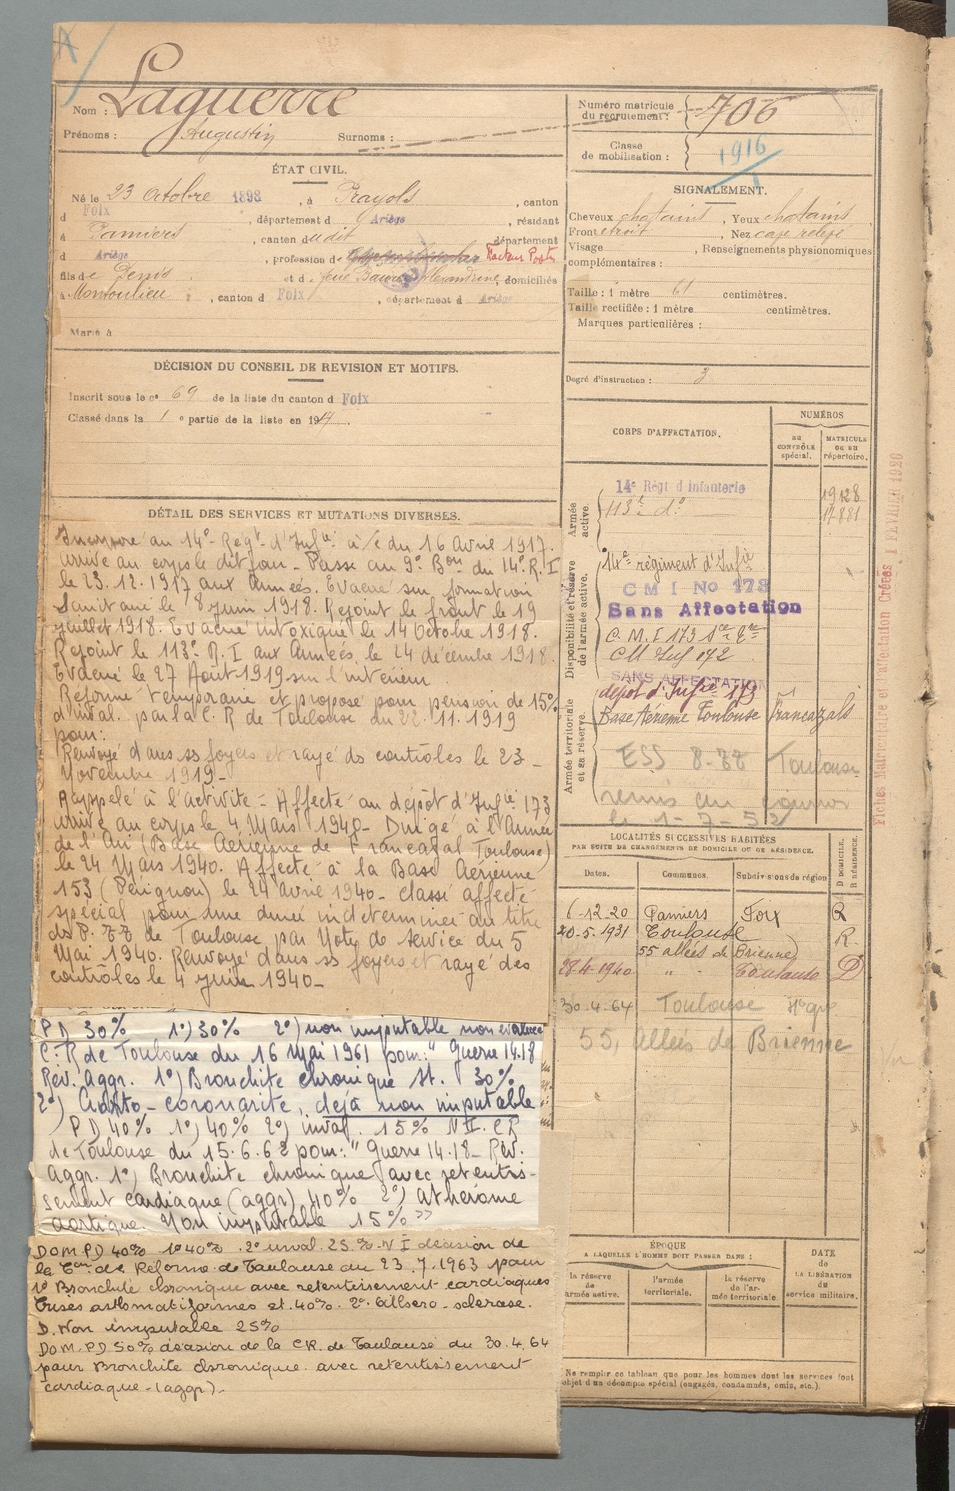 Nom : Laguerre
Prénoms : Augustin Surnoms :
Numéro matricule du recrutement : 706
Classe de mobilisation : 1916
ÉTAT CIVIL.
Né le 23 Octobre 1898, à Prayols, canton
d Foix, département d Ariège, résidant
à Pamiers, canton du dit département
d Ariège, profession de Facteur Postes
fils de Denis et d feue Alexandrine, domiciliés
à Montoulieu, canton d Foix, département d Ariège
Marié à
SIGNALEMENT.
Cheveux chatains, Yeux chatains
Front étroit, Nez cave relevé
Visage , Renseignements physionomiques
complémentaires :
Taille : 1 mètre 61 centimètres.
Taille rectifiée : 1 mètre centimètres.
Marques particulières :
Degré d'instruction : 3
DÉCISION DU CONSEIL DE REVISION ET MOTIFS.
Inscrit sous le n° 69 de la liste du canton d Foix
Classé dans la 1 e partie de la liste en 1917.
DÉTAIL DES SERVICES ET MUTATIONS DIVERSES.
Incorporé au 14e Régt d'Infie à/c du 16 Avril 1917.
arrivé au corps le dit jour - Passé au 9e Bon du 14e R.I
le 23.12.1917 aux Armées. Evacué sur formation
Sanitaire le 8 juin 1918. Rejoint le front le 19
juillet 1918. Evacué intoxiqué le 14 Octobre 1918.
Rejoint le 113e R.I aux Armées le 24 décembre 1918.
Evacué le 27 Août 1919 sur l'intérieur
Réformé temporaire et proposé pour pension de 15%
d'inval. par la C.R de Toulouse du 22.11.1919
pour:
Renvoyé dans ss foyers et rayé ds contrôles le 23
Novembre 1919-
Rappelé à l'activité - Affecté au dépôt d'Infie 173
arrivé au corps le 4 Mars 1940 - Dirigé à l'Armée
de l'Air (Base Aérienne de Francazal Toulouse)
le 24 Mars 1940. Affecté à la Base Aérienne
153 (Pérignon) le 24 Avril 1940 - classé affecté
spécial pour une durée indéterminée au titre
de Toulouse par Note de Service du 5
Mai 1940. Renvoyé dans ss foyers et rayé des
contrôles le 4 juin 1940-
PD 30% 1°) 30% 2°) non imputable non évaluée
C.R de Toulouse du 16 Mai 1961 pour: " Guerre 14.18
Rév. Aggr. 1°) Bronchite chronique St. 30%
2°) Aorto-coronarite, déjà non imputable
PD 40% 1°) 40% 2°) inval. 15% N II. CR
de Toulouse du 15.6.62 pour: " Guerre 14.18 - Rév.
Aggr. 1°) Bronchite chronique avec retentis-
sement cardiaque (aggr) 40% 2°) athérome
aortique. Non imputable 15% "
DOM. PD 40% 1° 40% 2° inval. 25% N I décision de
la Con de Réforme de Toulouse du 23.7.1963 pour
1° Bronchite chronique avec retentissement cardiaques
Crises asthmatiformes et. 40%. 2° Athéro-sclérose.
D. Non imputable 25%
DOM. PD 50% décision de la CR. de Toulouse du 30.4.64
pour Bronchite chronique avec retentissement
cardiaque - (aggr) -
CORPS D'AFFECTATION.
NUMÉROS
AU CONTRÔLE spécial.
MATRICULE OU AU répertoire.
Armée active.
14e Régt d'Infanterie 19128
113e do 17881
Disponibilité et réserve de l'armée active.
14e régiment d'Infie
C M I No 173
Sans Affectation
C.M.I 173
CM Inf 172
SANS AFFECTATION
Armée territoriale et sa réserve.
dépôt d'Infie 173
Base Aérienne Toulouse Francazals
Toulouse
remis au
le 1-7-52
Fiches Matriculaire et affectation Créées 1 FEVRIER 1926
LOCALITÉS SUCCESSIVES HABITÉES
PAR SUITE DE CHANGEMENTS DE DOMICILE OU DE RÉSIDENCE.
Dates. Communes. Subdivisions de région D DOMICILE. R RÉSIDENCE.
6-12-20 Pamiers Foix R
20-5-1931 Toulouse R.
55 allées de Brienne
28-4-1940 " Toulouse D
30.4.64 Toulouse
55, Allées de Brienne
ÉPOQUE
A LAQUELLE L'HOMME DOIT PASSER DANS :
la réserve de l'armée active.
l'armée territoriale.
la réserve de l'armée territoriale.
DATE de LA LIBÉRATION du service militaire.
Ne remplir ce tableau que pour les hommes dont les services font
objet d'un décompte spécial (engagés, condamnés, omis, etc.).